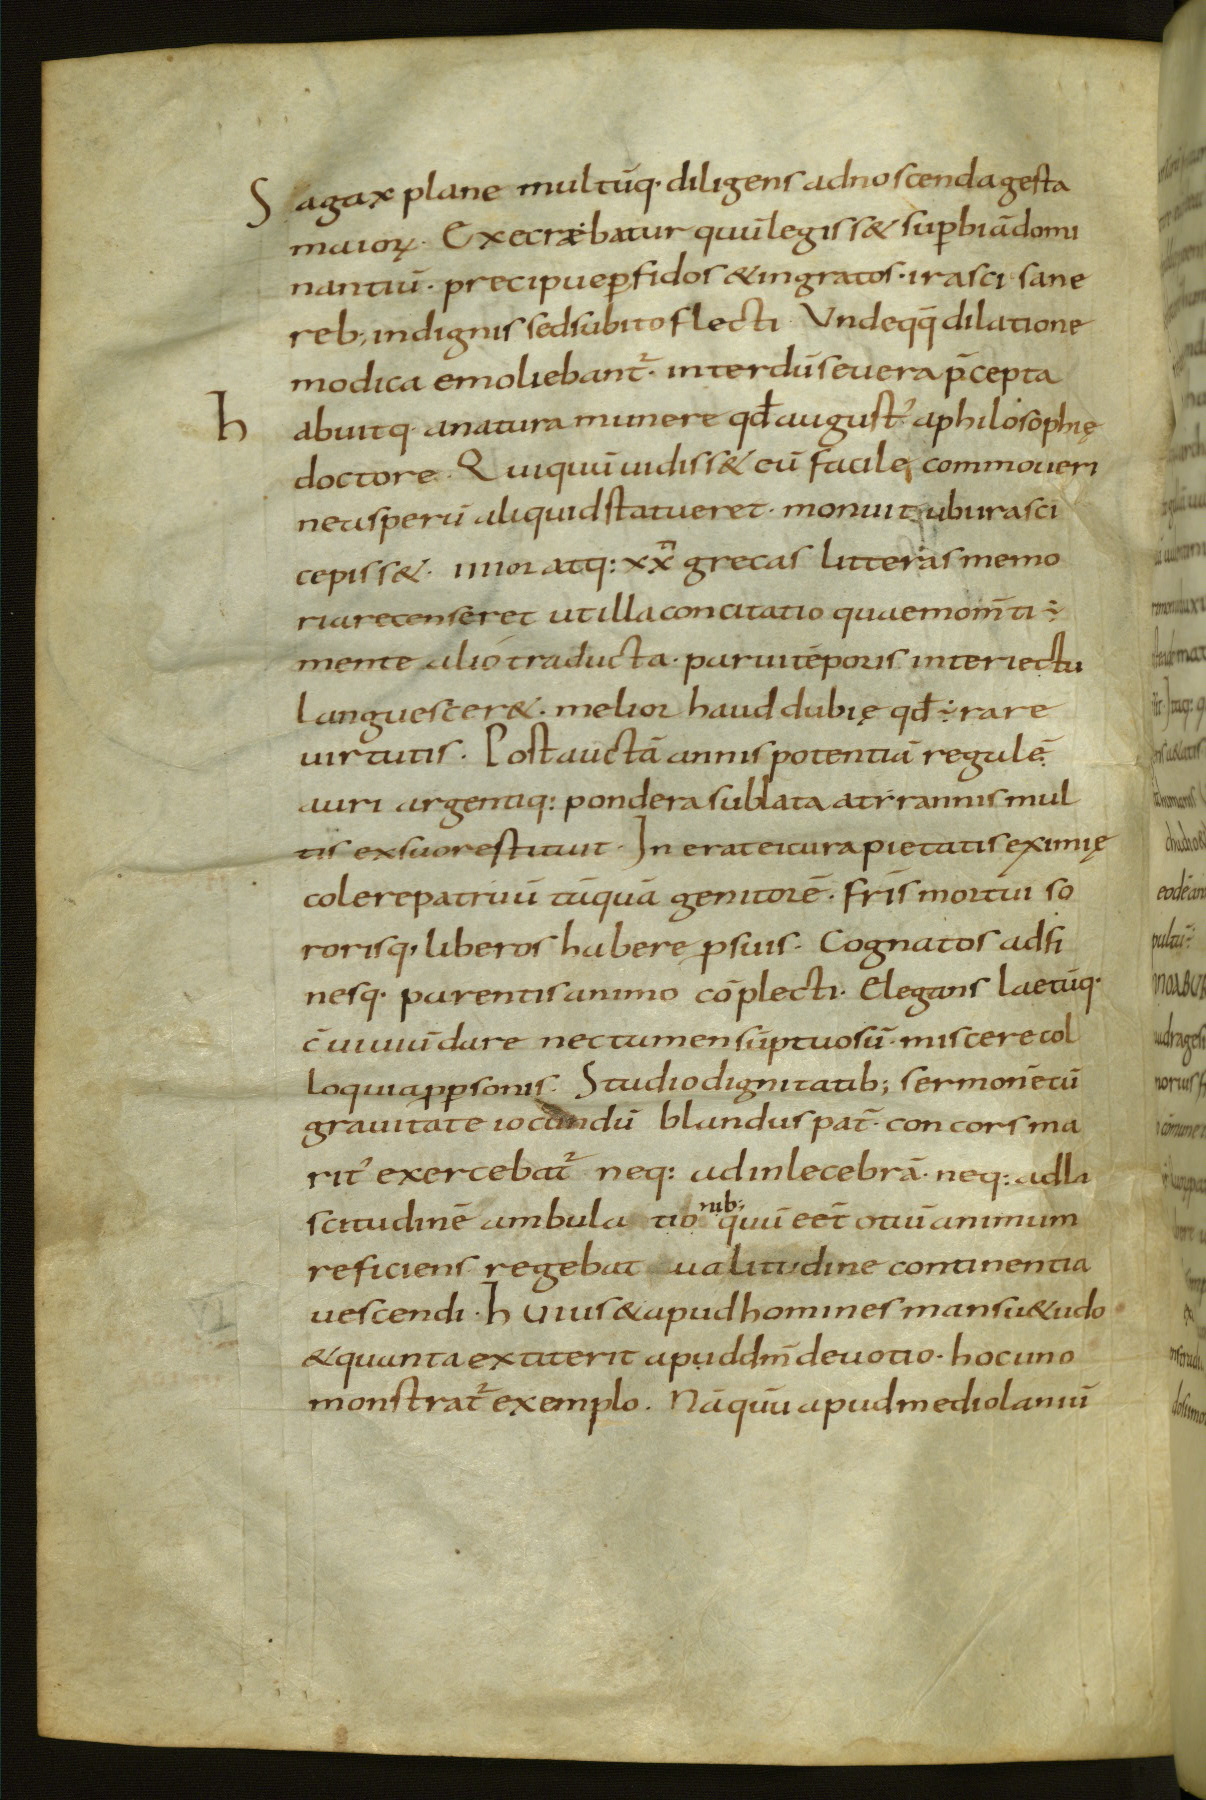 Sagax plane multūq· diligens adnoscenda gesta
maioꝝ· Execræbatur quū legiss& suꝑbiā domi
nantiū· precipue ꝑfidos & ingratos· irasci sane
reb; indignis sed subito flecti· Vnde qq̄ dilatione
modica emoliebant᷑· interdū seuera p̄cepta
habuitq· a natura munere qđ august᾽ a philosophię
doctore· Qui quū uidiss& eū facile commoueri
ne asperū aliquid statueret· monuit ubi irasci
cepiss&· iiiior atq: xx grecas litteras memo
ria recenseret ut illa concitatio quae mom̄ti ÷
mente alio traducta· parui tēporis interiectu
languescer&· melior haud dubię qđ ÷ rare
uirtutis· Post auctā annis potentiā regalē
auri argentiq: pondera sublata a tirannis mul
tis ex suo restituit· In erat ei cura pietatis eximię
colere patruū tāquā genitorē· fr̄is mortui so
rorisq; liberos habere ꝑ suis· Cognatos adfi
nesq· parentis animo cōplecti· Elegans laetūq·
c̄uiuiū dare nec tamen sūptuosū· miscere col
loquia ꝓ ꝑsonis· Studio dignitatib; sermonē cū
grauitate iocundū blandus pat̄· concors ma
rit᾽ exercebat᷑ neq: ad inlecebrā· neq: ad la
scitudinē ambulationib: quū eēt otiū animum
reficiens regebat ualitudine continentia
uescendi· huius & apud homines mansu&udo
& quanta extiterit apud dm̄ deuotio· hoc uno
monstrat᷑ exemplo· Nā quū apud mediolaniū